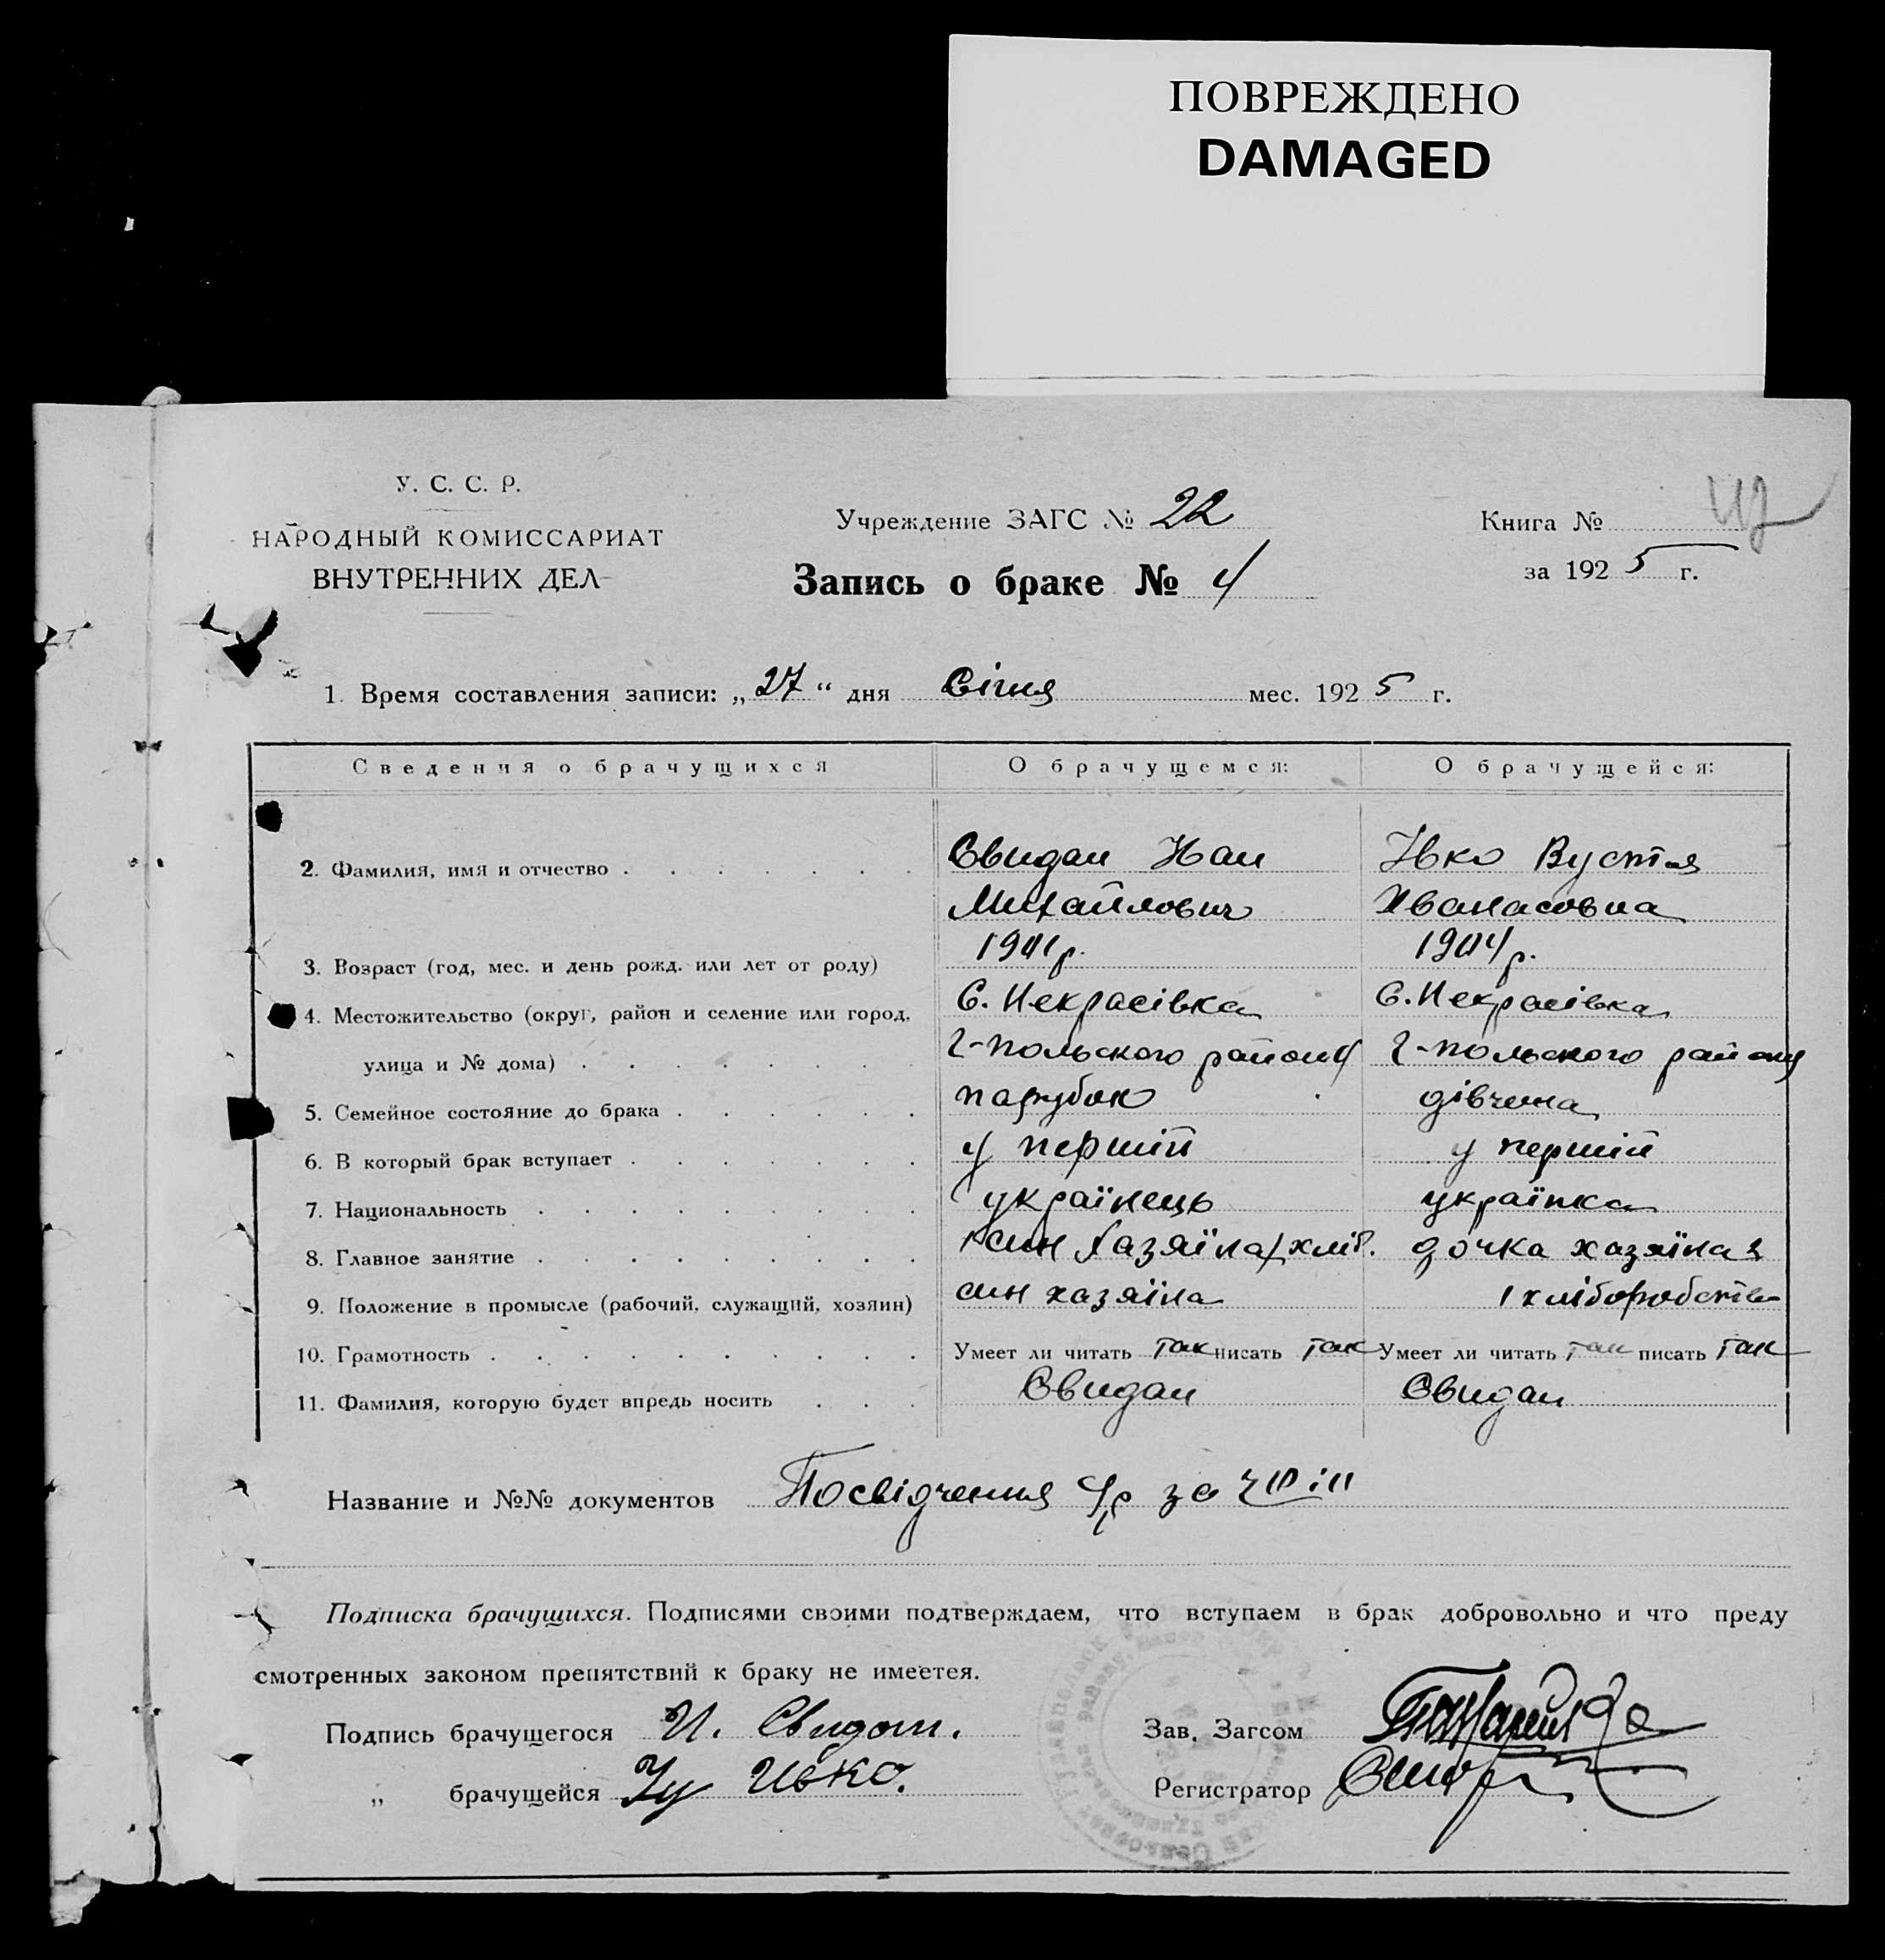 ПОВРЕЖДЕНО
DAMAGED
У. С. С. Р.
НАРОДНЫЙ КОМИССАРИАТ
ВНУТРЕННИХ ДЕЛ
Учреждение ЗАГС № 22
Запись о браке № 4
Книга №
за 1925 г.
1. Время составления записи: „27“ дня Січня мес. 1925 г.
Сведения о брачущихся О брачущемся: О брачущейся:
2. Фамилия, имя и отчество Свидан Иван Ивко Вустя
Михайлович
3. Возраст (год, мес. и день рожд. или лет от роду) 1901р. 1904р.
4. Местожительство (округ, район и селение или город, С. Некрасівка С. Некрасівка
улица и № дома) Г-польского району Г-польского району
5. Семейное состояние до брака парубок дівчина
6. В который брак вступает у перший у перший
7. Национальность українець українка
8. Главное занятие син хазяїна хліб. дочка хазяїна
9. Положение в промысле (рабочий, служащий, хозяин) син хазяїна хліборобство
10. Грамотность Умеет ли читать так писать так Умеет ли читать так писать так
11. Фамилия, которую будет впредь носить Свидан Свидан
Название и №№ документов Посвідчення С/р за
Подписка брачущихся. Подписями своими подтверждаем, что вступаем в брак добровольно и что преду
смотренных законом препятствий к браку не имеется.
Подпись брачущегося И. Свидан.
Зав. Загсом
„ брачущейся Ивко.
Регистратор